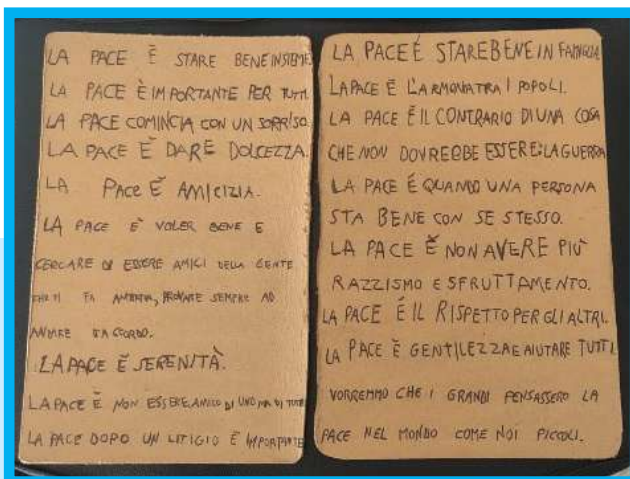 LA PACE È STARE BENE INSIEME
LA PACE È IMPORTANTE PER TUTTI.
LA PACE COMINCIA CON UN SORRISO.
LA PACE È DARE DOLCEZZA.
LA PACE È AMICIZIA.
LA PACE È VOLER BENE E
CERCARE DI ESSERE AMICI DELLA GENTE
CHE TI FA SEMPRE AD
ANDARE D'ACCORDO.
LA PACE È SERENITÀ.
LA PACE È NON ESSERE AMICO DI UNO MA DI TUTTI
LA PACE DOPO UN LITIGIO È IMPORTANTE
LA PACE È STARE BENE IN FAMIGLIA
LA PACE È L'ARMONIA TRA I POPOLI.
LA PACE È IL CONTRARIO DI UNA COSA
CHE NON DOVREBBE ESSERCI: LA GUERRA
LA PACE È QUANDO UNA PERSONA
STA BENE CON SE STESSO.
LA PACE È NON AVERE PIÙ
RAZZISMO E SFRUTTAMENTO.
LA PACE È IL RISPETTO PER GLI ALTRI.
LA PACE È GENTILEZZA E AIUTARE TUTTI.
VORREMMO CHE I GRANDI PENSASSERO LA
PACE NEL MONDO COME NOI PICCOLI.